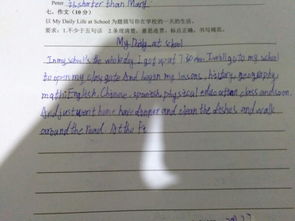 Peter is shorter than Mary.
七、作文（10分）
以 My Daily Life at School 为题描写你在学校的一天的生活。
要求：1.不少于五句话 2.条理清楚，意思连贯，标点正确，书写规范。
My Daily at school
In my school's the I get up at 7 I will go to my school
to open my class gate And began my lessons, history, geography
math English, Chinese, spanish, physical education class and soon.
And just went home have danner and clean the dishes and walk
around the road. At the